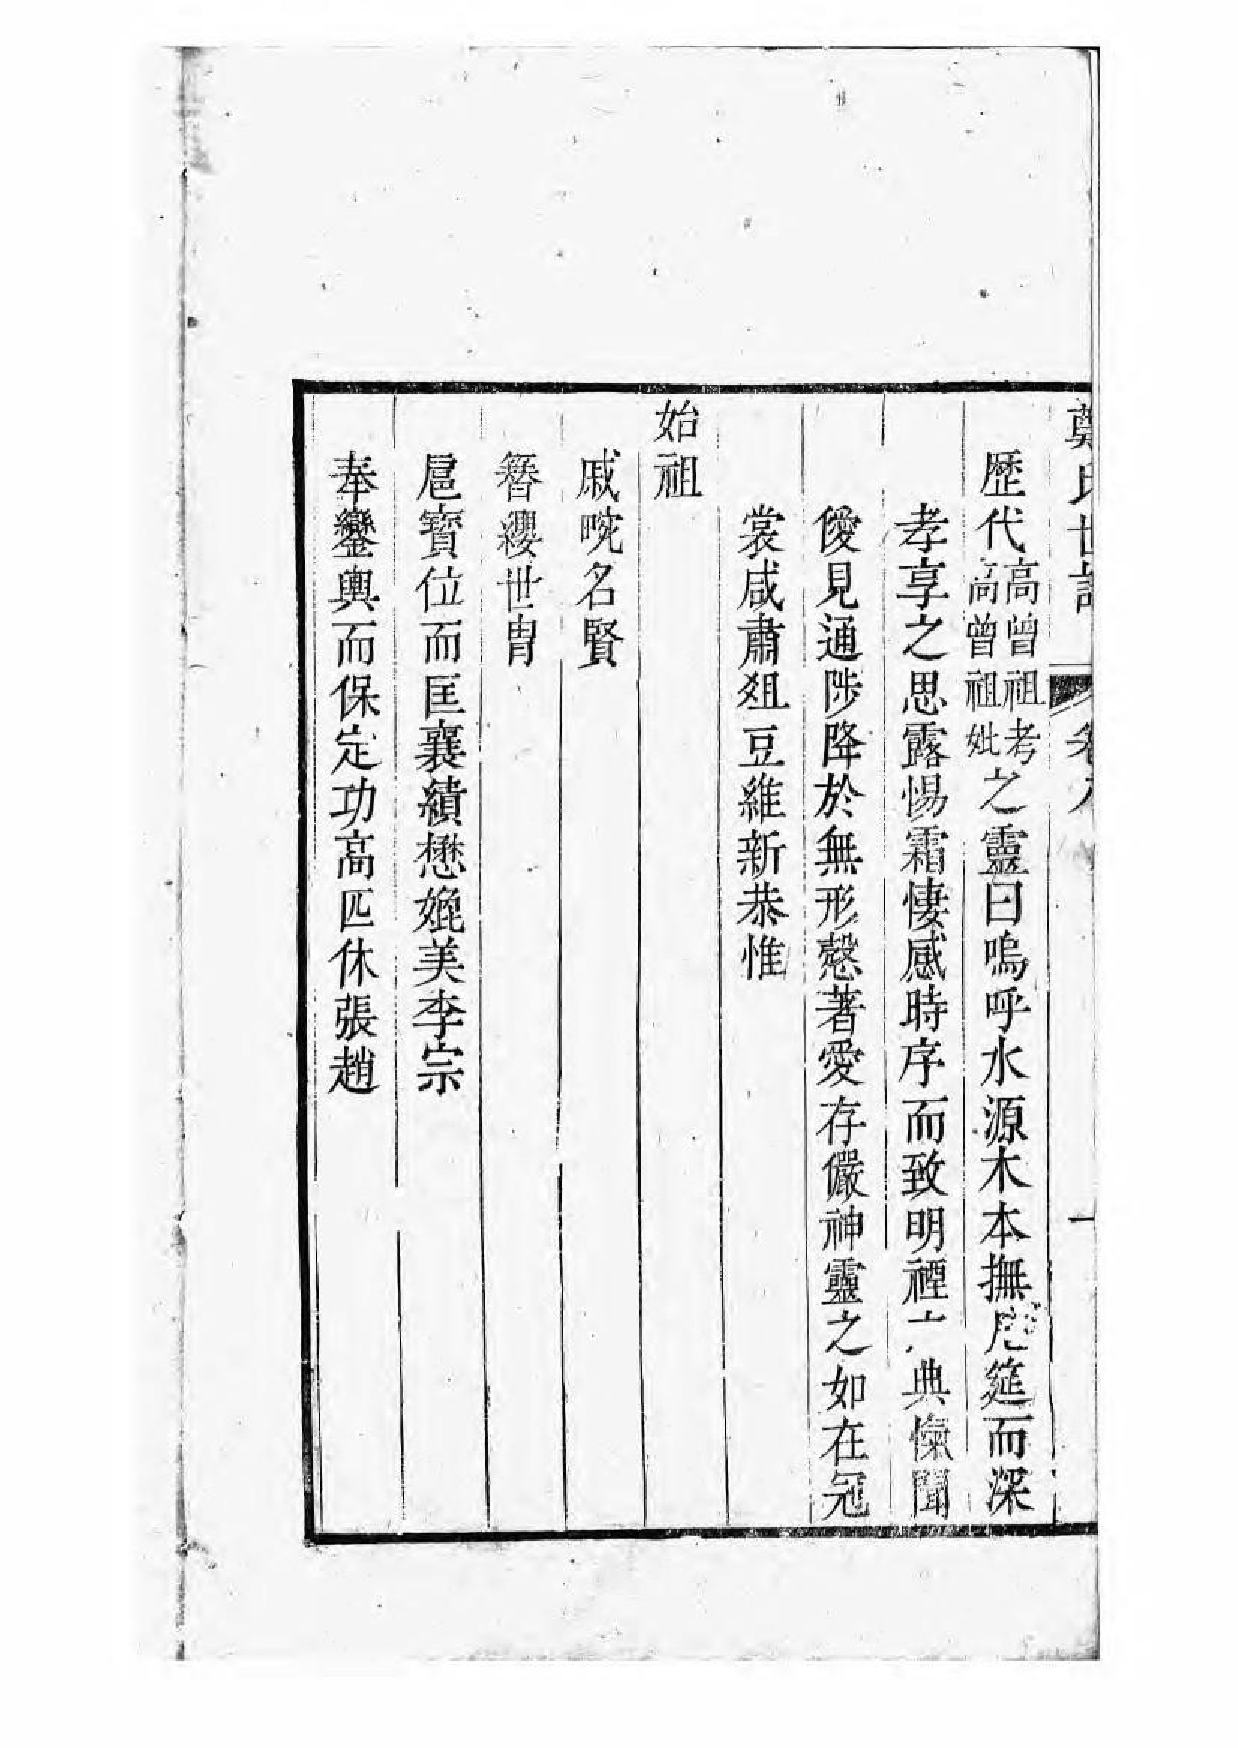 鄭氏世譜 卷八 一
歷代高曾祖考高曾祖妣之靈曰嗚呼水源木本撫几筵而深
孝享之思露惕霜悽感時序而致明禋六典愾聞
僾見通陟降於無形慤著愛存儼神靈之如在冠
裳咸肅俎豆維新恭惟
始祖
戚畹名賢
簪纓世胄
扈寶位而匡襄績懋媲美李宗
奉鑾輿而保定功高匹休張趙